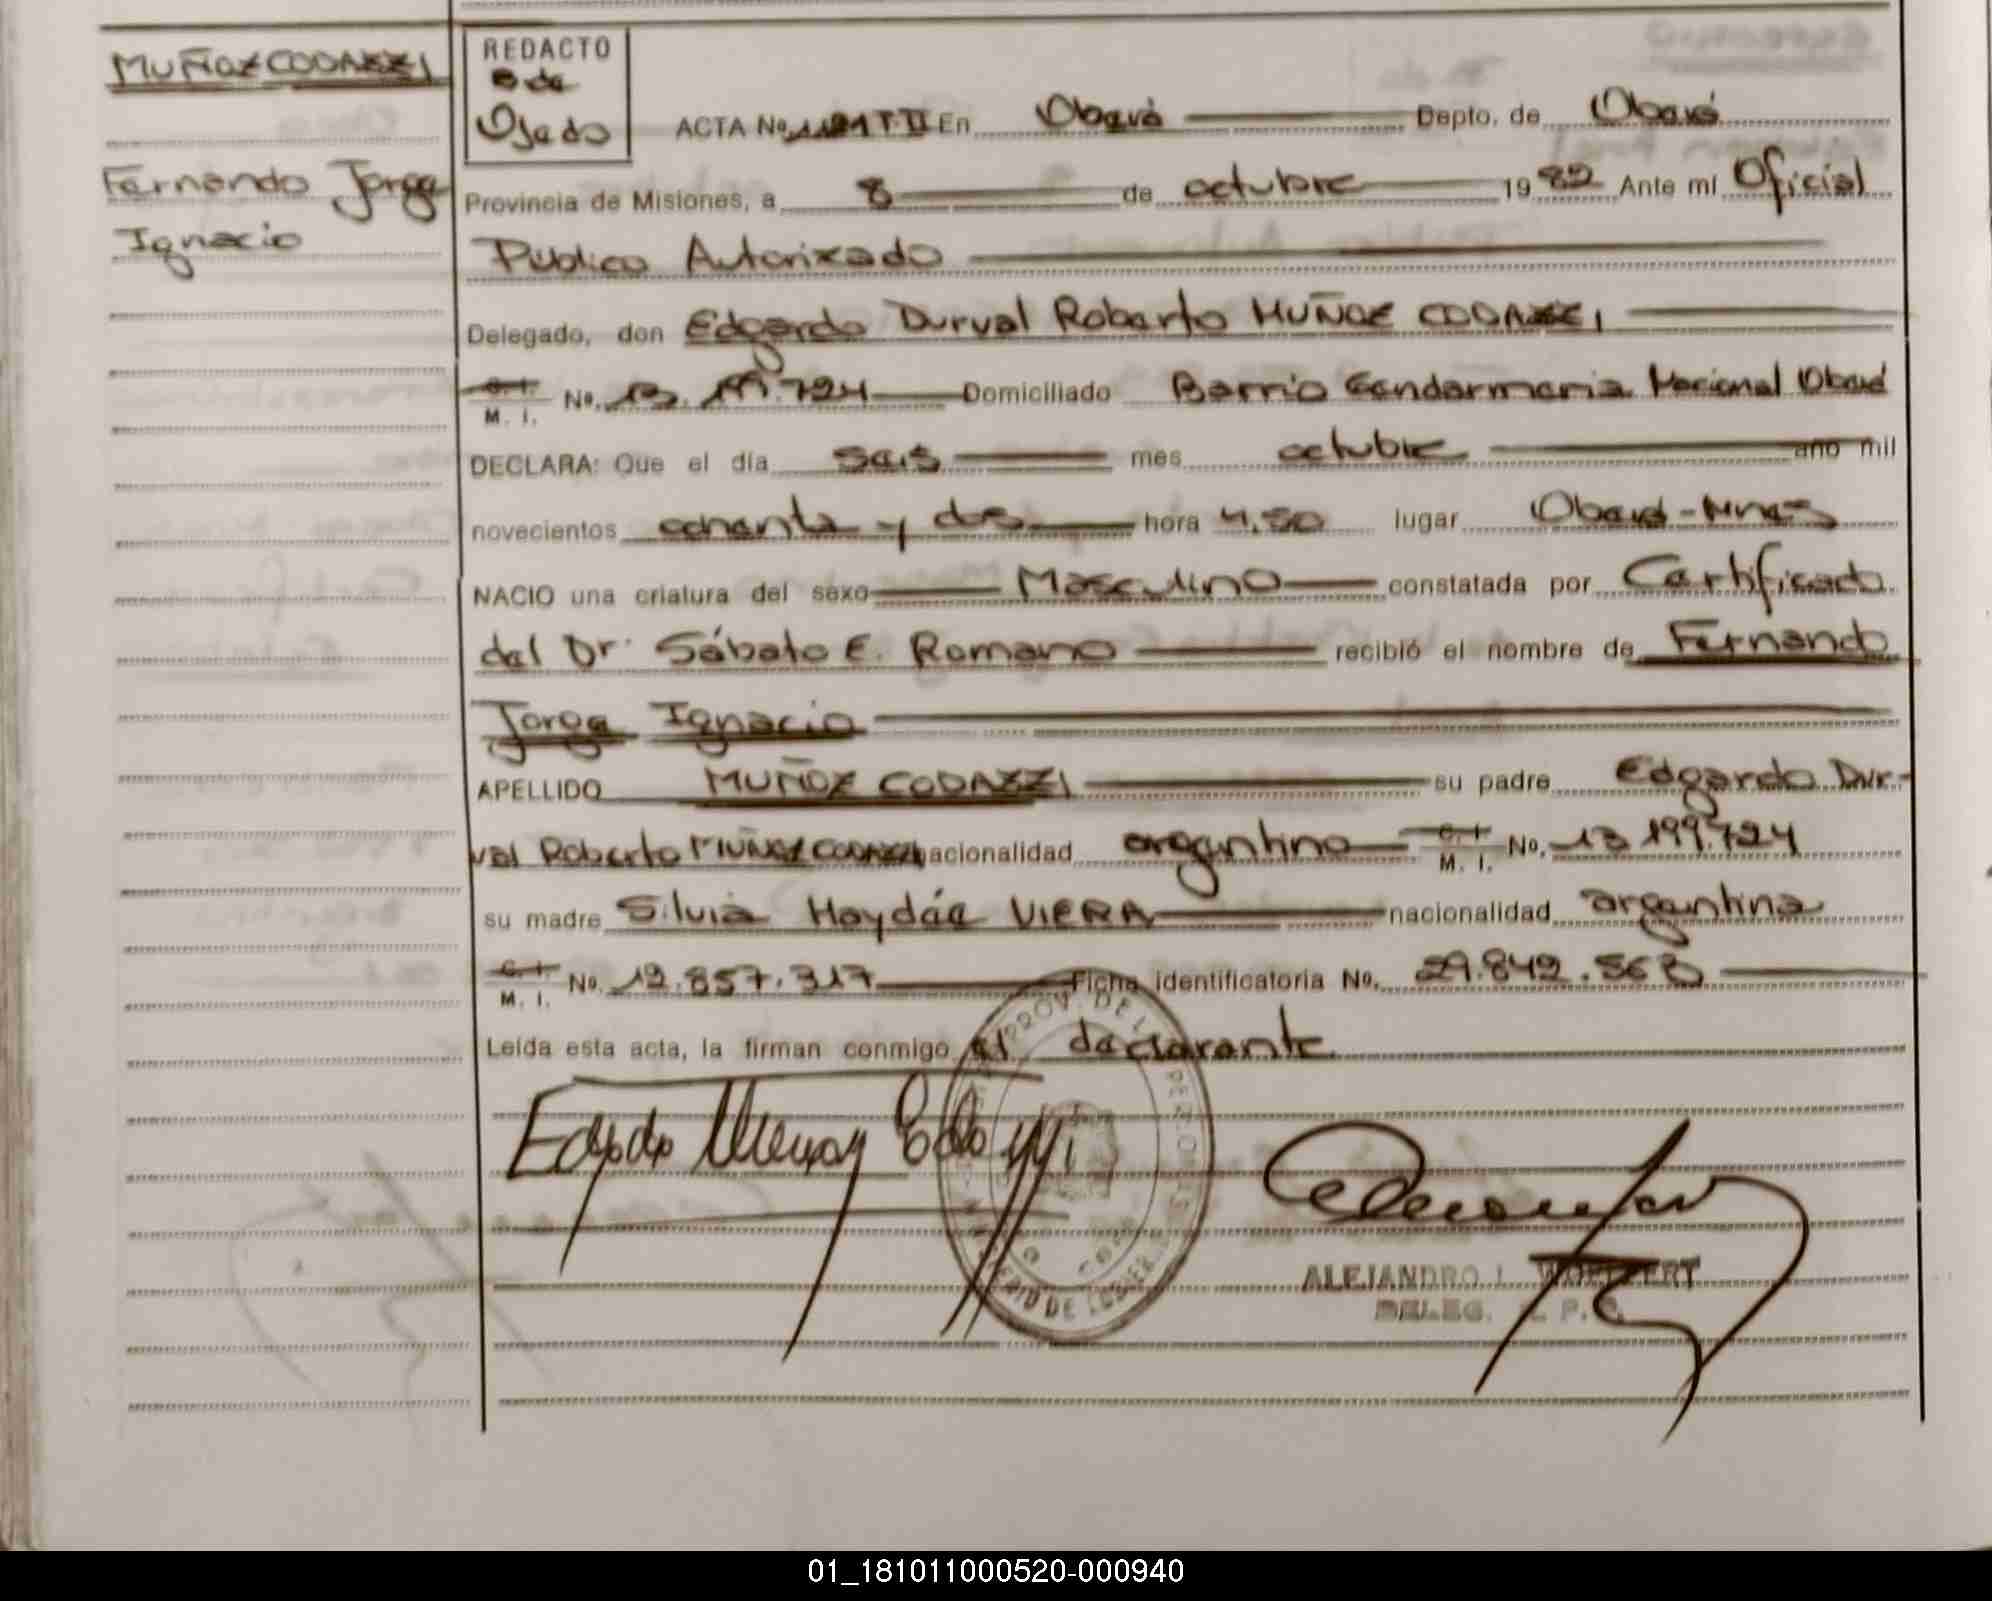 MUÑOZ CODAZZI
Fernando Jorge
Ignacio
REDACTO
B de
Ojeda
ACTA No 1181 T.II En Oberá Depto. de Oberá
Provincia de Misiones, a 8 de octubre 1982 Ante mí Oficial
Público Autorizado
Delegado, don Edgardo Durval Roberto MUÑOZ CODAZZI
C. I. M. I. No. 13.199.724 Domiciliado Barrio Gendarmeria Nacional Oberá
DECLARA: Que el día seis mes octubre año mil
novecientos ochenta y dos hora 4,50 lugar Oberá-Mnes
NACIO una criatura del sexo Masculino constatada por Certificado
del Dr. Sábato E. Romano recibió el nombre de Fernando
Jorge Ignacio
APELLIDO MUÑOZ CODAZZI su padre Edgardo Dur-
val Roberto MUÑOZ CODAZZI nacionalidad argentino C. I. M. I. No. 13 199.724
su madre Silvia Haydée VIERA nacionalidad argentina
C. I. M. I. No. 12.857.317 Ficha identificatoria No. 29.842.563
Leída esta acta, la firman conmigo el declarante
Edgardo Munoz Codazzi
PROV. DE LAS PERSONAS
MINISTERIO DE GOBIER
ALEJANDRO L.
DELEG. R. P. C.
01_181011000520-000940